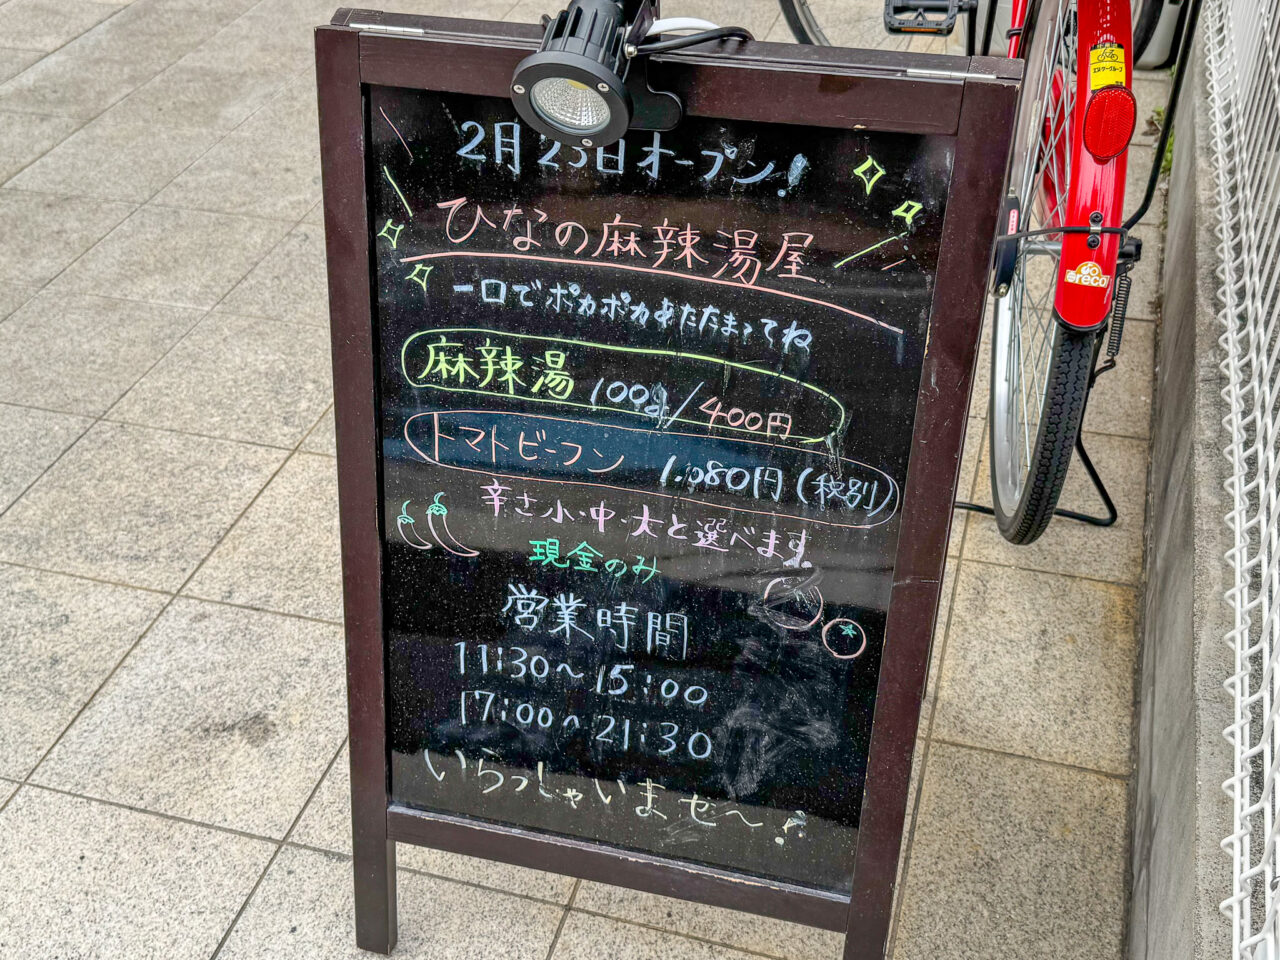 2月23日オープン!
ひなの麻辣湯屋
一口でポカポカあたたまってね
麻辣湯 100g/400円
トマトビーフン 1.080円(税別)
辛さ小・中・大と選べます
現金のみ
営業時間
11:30〜15:00
17:00〜21:30
いらっしゃいませ〜!
eco